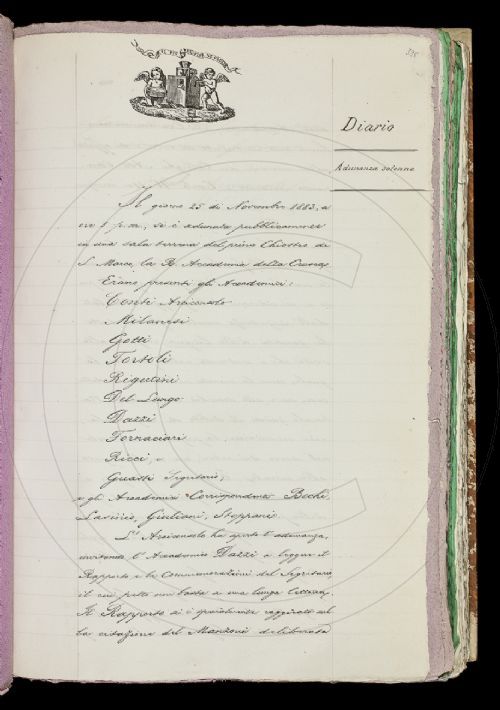 Diario
Adunanza solenne
Il giorno 25 di Novembre 1883, a
ore 1 p.m., si è adunata pubblicamente
in una sala terrena del primo Chiostro di
S. Marco, la R. Accademia della Crusca.
Erano presenti gli Accademici:
Conti Arciconsolo
Milanesi
Gotti
Tortoli
Rigutini
Del Lungo
Dazzi
Fornaciari
Ricci, e
Guasti Segretario;
e gli Accademici Corrispondenti Bechi
Giuliani, Stoppani
L'Arciconsolo ha aperto l'adunanza,
invitando l'Accademico Dazzi a leggere il
Rapporto e le Commemorazioni del Segretario,
il cui petto non basta a una lunga lettura.
Il Rapporto si è specialmente raggirato sul
la citazione del Manzoni deliberata